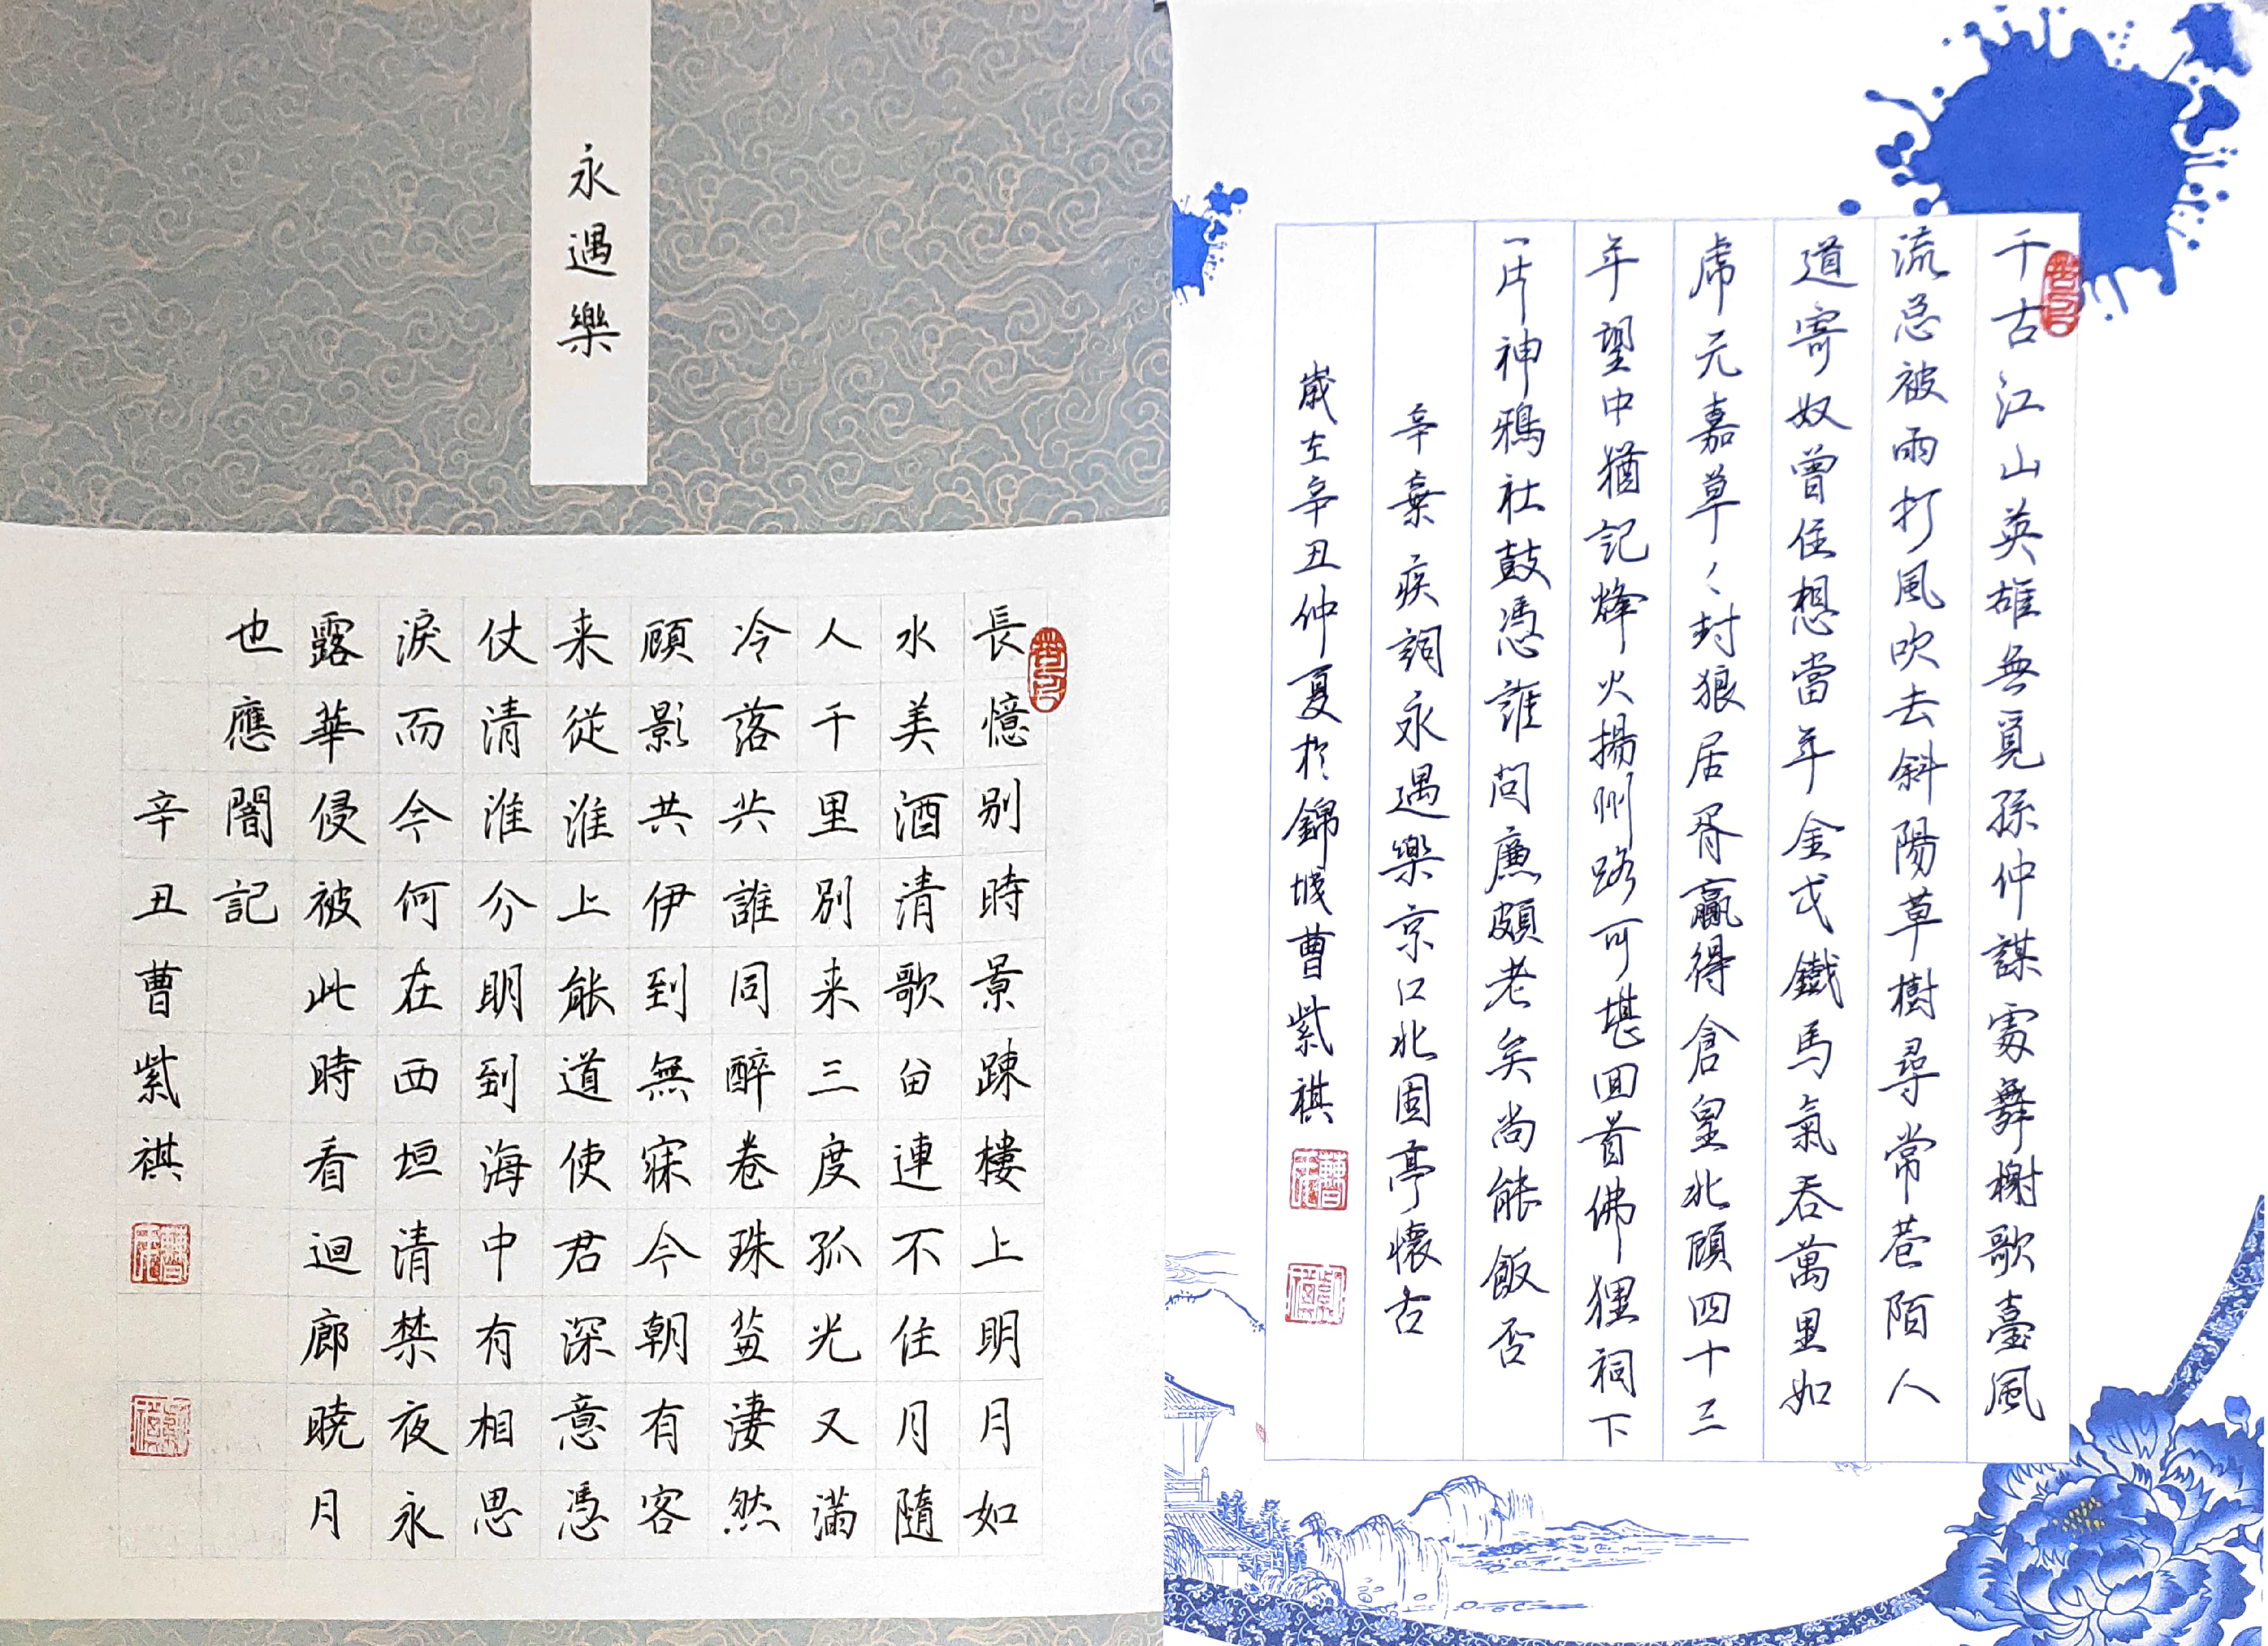 永遇樂
長憶別時景踈樓上明月如
水美酒清歌畄連不住月隨
人千里別来三度孤光又滿
冷落共誰同醉卷珠簾淒然
顧影共伊到無寐今朝有客
来從淮上能道使君深意憑
仗清淮分明到海中有相思
淚而今何在西垣清禁夜永
露華侵被此時看迴廊曉月
也應闇記
辛丑曹紫祺
千古江山英雄無覓孫仲謀處舞榭歌臺風
流总被雨打風吹去斜陽草樹尋常巷陌人
道寄奴曾住想當年金戈鐵馬氣吞萬里如
虎元嘉草〻封狼居胥贏得倉皇北顧四十三
年望中猶記烽火揚州路可堪回首佛狸祠下
一片神鴉社鼓憑誰問廉頗老矣尚能飯否
辛棄疾詞永遇樂京口北固亭懷古
歲在辛丑仲夏於錦城曹紫祺